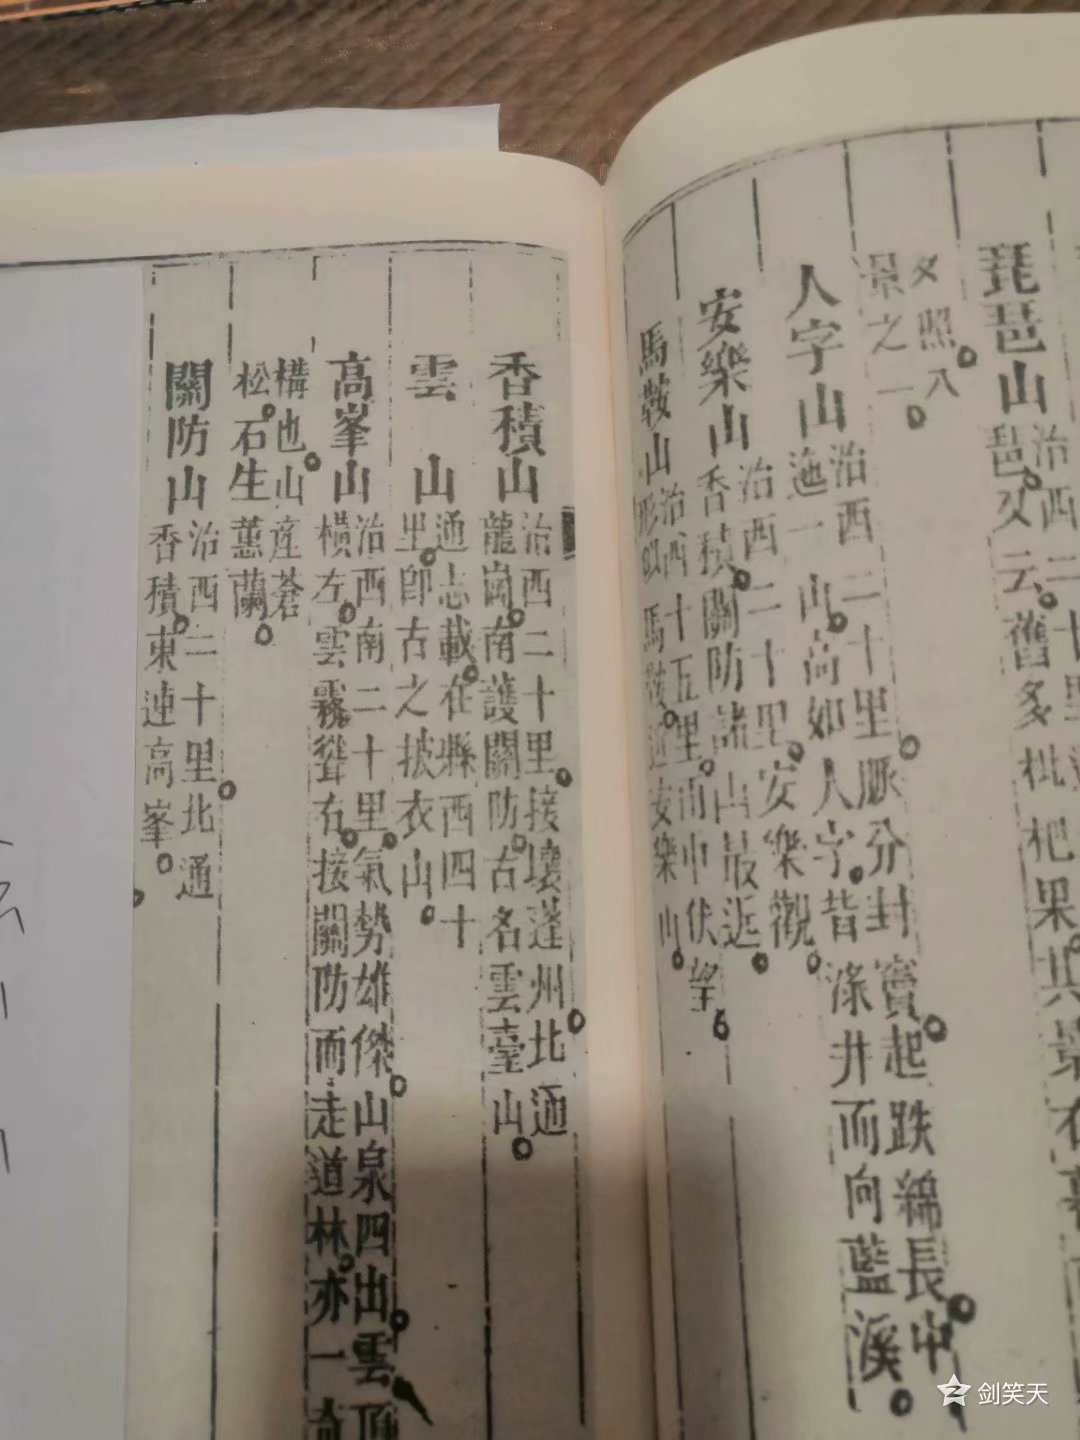 琵琶山
治西二十里
琶又云舊多枇杷果其景在
夕照八
景之一
人字山
治西二十里脈分封竇起跌綿長中
迤一山高如人字皆滌井而向藍溪
安樂山
治西二十里安樂觀
香積關防諸山最近
馬鞍山
治西十五里而中伏望
形似馬鞍近安樂山
香積山
治西二十里接壤蓬州北通
龍崗南護關防古名雲臺山
雲山
通志載在縣西四十
里即古之披衣山
高峯山
治西南二十里氣勢雄傑山泉四出雲頂
橫左雲霧聳右接關防而走道林亦一奇
構也山產蒼
松石生蕙蘭
關防山
治西二十里北通
香積東連高峯
剑笑天